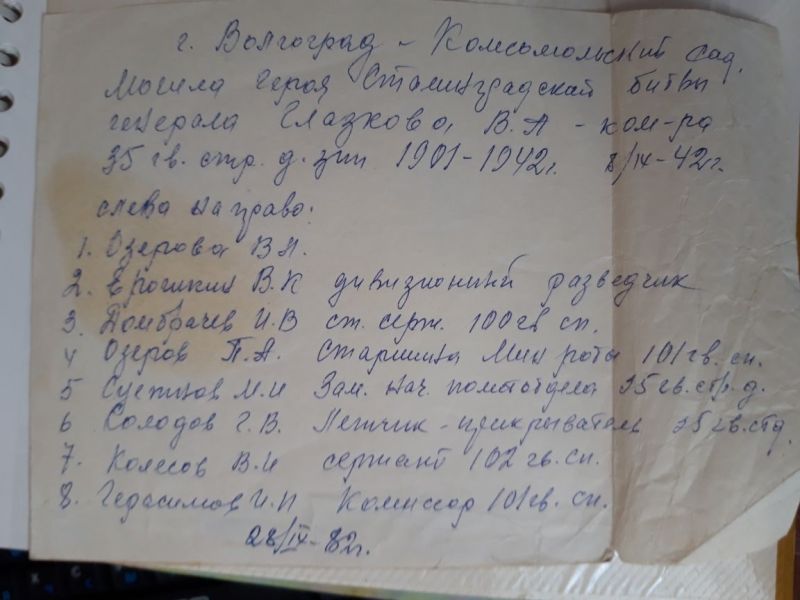 г. Волгоград - Комсомольский сад.
Могила Героя Сталинградской битвы
генерала Глазкова, В.А - ком-ра
35 гв. стр. д. 1901-1942г. 8/IX-42г.
слева направо:
1. Озерова В.А.
2. Ерошкин В.К дивизионный разведчик
3. Домбрачев И.В ст. серж. 100 гв сп.
4 Озеров П.А. Старшина Мин роты 101 гв. сп.
5 М.И Зам. нач. политотдела 35 гв. стр. д.
6 Солодов Г.В. Летчик-прикрыватель 35 гв. стд.
7. Колесов В.И сержант 102 гв. сп.
8. Герасимов И.П Комиссар 101 гв. сп.
28/IX-82г.